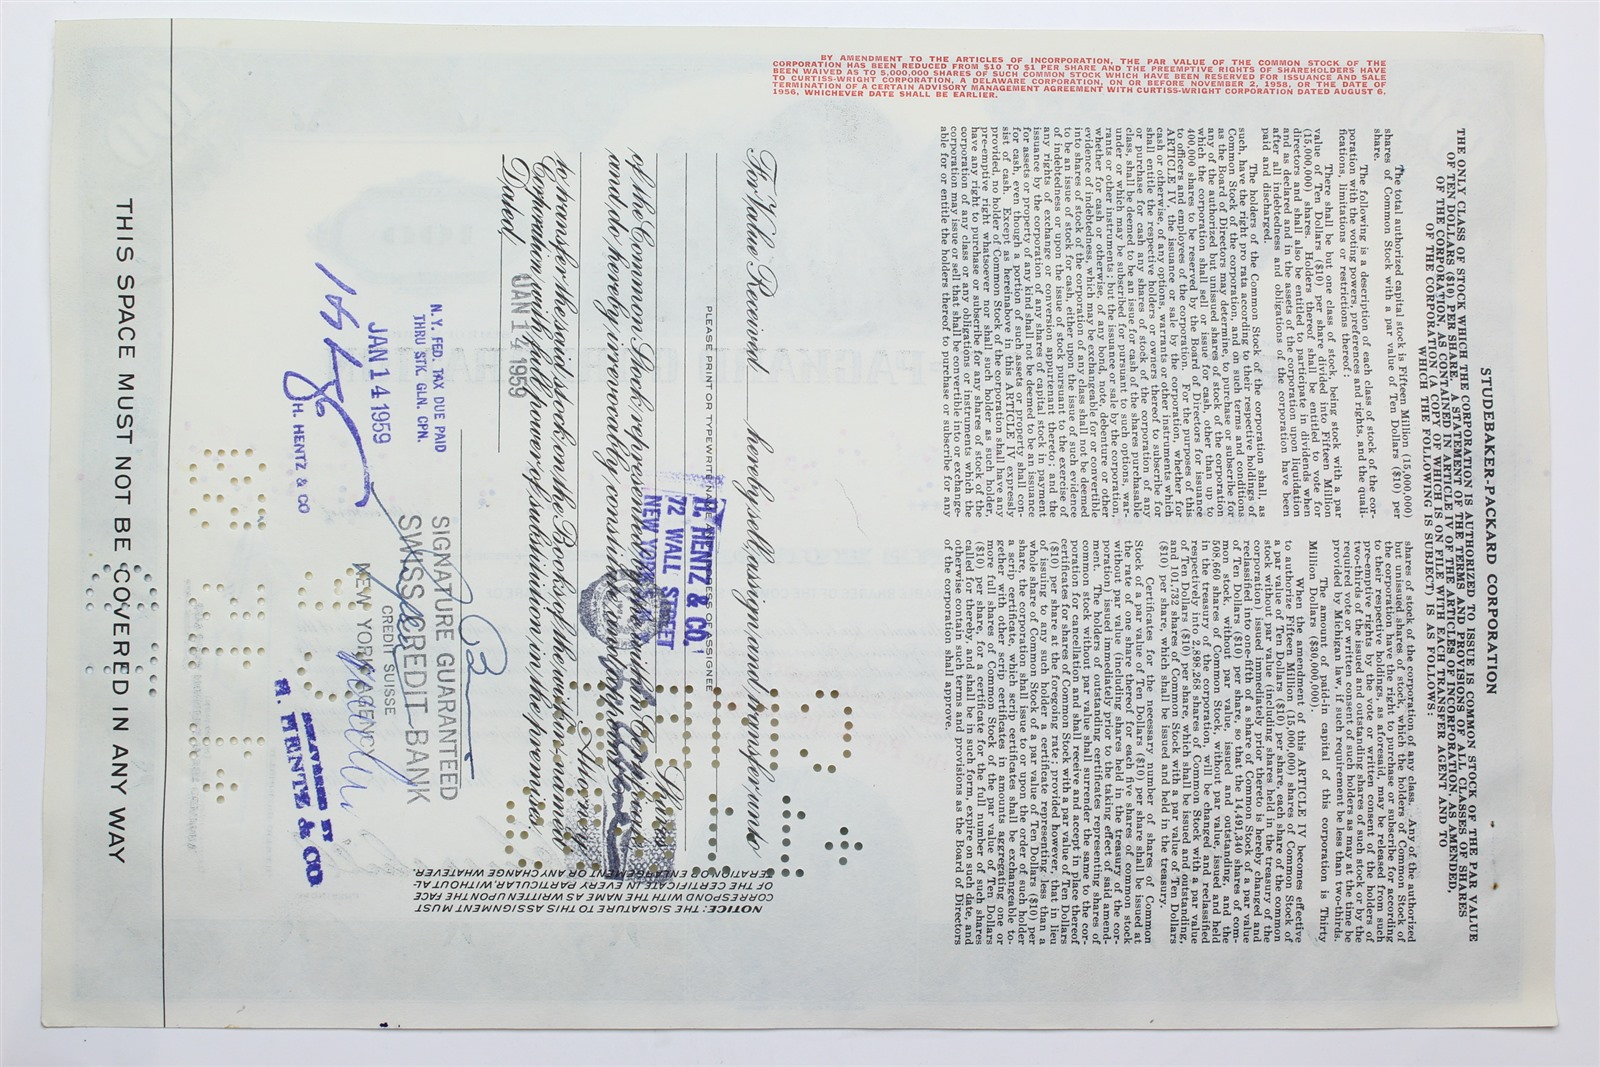 BY AMENDMENT TO THE ARTICLES OF INCORPORATION, THE PAR VALUE OF THE COMMON STOCK OF THE
CORPORATION HAS BEEN REDUCED FROM $10 TO $1 PER SHARE AND THE PREEMPTIVE RIGHTS OF SHAREHOLDERS HAVE
BEEN WAIVED AS TO 5,000,000 SHARES OF SUCH COMMON STOCK WHICH HAVE BEEN RESERVED FOR ISSUANCE AND SALE
TO CURTISS-WRIGHT CORPORATION, A DELAWARE CORPORATION, ON OR BEFORE NOVEMBER 2, 1958, OR THE DATE OF
TERMINATION OF A CERTAIN ADVISORY MANAGEMENT AGREEMENT WITH CURTISS-WRIGHT CORPORATION DATED AUGUST 6,
1956, WHICHEVER DATE SHALL BE EARLIER.
STUDEBAKER-PACKARD CORPORATION
THE ONLY CLASS OF STOCK WHICH THE CORPORATION IS AUTHORIZED TO ISSUE IS COMMON STOCK OF THE PAR VALUE
OF TEN DOLLARS ($10) PER SHARE. A STATEMENT OF THE TERMS AND PROVISIONS OF ALL CLASSES OF SHARES
OF THE CORPORATION, AS CONTAINED IN ARTICLE IV OF THE ARTICLES OF INCORPORATION, AS AMENDED,
OF THE CORPORATION (A COPY OF WHICH IS ON FILE WITH EACH TRANSFER AGENT AND TO
WHICH THE FOLLOWING IS SUBJECT) IS AS FOLLOWS:
The total authorized capital stock is Fifteen Million (15,000,000)
shares of Common Stock with a par value of Ten Dollars ($10) per
share.
The following is a description of each class of stock of the cor-
poration with the voting powers, preferences and rights, and the quali-
fications, limitations or restrictions thereof:
There shall be but one class of stock, being stock with a par
value of Ten Dollars ($10) per share divided into Fifteen Million
(15,000,000) shares. Holders thereof shall be entitled to vote for
directors and shall also be entitled to participate in dividends when
and as declared and in the assets of the corporation upon liquidation
after all indebtedness and obligations of the corporation have been
paid and discharged.
The holders of the Common Stock of the corporation shall, as
such, have the right pro rata according to their respective holdings of
Common Stock of the corporation, and on such terms and conditions
as the Board of Directors may determine, to purchase or subscribe for
any of the authorized but unissued shares of stock of the corporation
which the corporation shall sell or issue for cash, other than up to
400,000 shares to be reserved by the Board of Directors for issuance
to officers and employees of the corporation. For the purposes of this
ARTICLE IV, the issuance or sale by the corporation, whether for
cash or otherwise, of any options, warrants or other instruments which
shall entitle the respective holders or owners thereof to subscribe for
or purchase for cash any shares of stock of the corporation of any
class, shall be deemed to be an issue for cash of the shares purchasable
under or which may be subscribed for pursuant to such options, war-
rants or other instruments; but the issuance or sale by the corporation,
whether for cash or otherwise, of any bond, note, debenture or other
evidence of indebtedness, which may be exchangeable for or convertible
into shares of stock of the corporation of any class shall not be deemed
to be an issue of stock for cash, either upon the issue of such evidence
of indebtedness or upon the issue of stock pursuant to the exercise of
any rights of exchange or conversion appurtenant thereto; and the
issuance by the corporation of any shares of capital stock in payment
for assets or property of any kind shall not be deemed to be an issuance
for cash, even though a portion of such assets or property shall con-
sist of cash. Except as hereinabove in this ARTICLE IV expressly
provided, no holder of Common Stock of the corporation shall have any
pre-emptive right whatsoever nor shall any such holder, as such holder,
have any right to purchase or subscribe for any shares of stock of the
corporation of any class or any obligations or instruments which the
corporation may issue or sell that shall be convertible into or exchange-
able for or entitle the holders thereof to purchase or subscribe for any
shares of stock of the corporation of any class. Any of the authorized
but unissued shares of stock, which the holders of Common Stock of
the corporation have the right to purchase or subscribe for according
to their respective holdings, as aforesaid, may be released from such
pre-emptive rights by the vote or written consent of the holders of
two-thirds of the issued and outstanding shares of such stock by the
required vote or written consent of such holders as may at the time be
provided by Michigan law, if such requirement be less than two-thirds.
The amount of paid-in capital of this corporation is Thirty
Million Dollars ($30,000,000);
When the amendment of this ARTICLE IV becomes effective
to authorize Fifteen Million (15,000,000) shares of Common Stock of
a par value of Ten Dollars ($10) per share, each share of the common
stock without par value (including shares held in the treasury of the
corporation) issued immediately prior thereto is hereby changed and
reclassified into one-fifth of a share of Common Stock of a par value
of Ten Dollars ($10) per share, so that the 14,491,340 shares of com-
mon stock, without par value, issued and outstanding, and the
508,660 shares of Common Stock, without par value, issued and held
in the treasury of the corporation, will be changed and reclassified
respectively into 2,898,268 shares of Common Stock with a par value
of Ten Dollars ($10) per share, which shall be issued and outstanding,
and 101,732 shares of Common Stock with a par value of Ten Dollars
($10) per share, which shall be issued and held in the treasury.
Certificates for the necessary number of shares of Common
Stock of a par value of Ten Dollars ($10) per share shall be issued at
the rate of one share thereof for each five shares of common stock
without par value (including shares held in the treasury of the cor-
poration) issued immediately prior to the taking effect of said amend-
ment. The holders of outstanding certificates representing shares of
common stock without par value shall surrender the same to the cor-
poration for cancellation and shall receive and accept in place thereof
certificates for shares of Common Stock with a par value of Ten Dollars
($10) per share at the foregoing rate; provided however, that in lieu
of issuing to any such holder a certificate representing less than a
whole share of Common Stock of a par value of Ten Dollars ($10) per
share, the corporation shall issue to or upon the order of such holder
a scrip certificate which scrip certificates shall be exchangeable to-
gether with other scrip certificates in amounts aggregating one or
more full shares of Common Stock of the par value of Ten Dollars
($10) per share, for a certificate for the full number of such shares
called for thereby, and shall be in such form, expire on such date, and
otherwise contain such terms and provisions as the Board of Directors
of the corporation shall approve.
For Value Received, hereby sell, assign and transfer unto
PLEASE PRINT OR TYPEWRITE NAME AND ADDRESS OF ASSIGNEE
H. HENTZ & CO.
72 WALL STREET
NEW YORK
Shares
of the Common Stock represented by the within Certificate,
and do hereby irrevocably constitute and appoint
Attorney
to transfer the said stock on the Books of the within named
Corporation with full power of substitution in the premises.
Dated, JAN 14 1959
NOTICE: THE SIGNATURE TO THIS ASSIGNMENT MUST
CORRESPOND WITH THE NAME AS WRITTEN UPON THE FACE
OF THE CERTIFICATE IN EVERY PARTICULAR, WITHOUT AL-
TERATION OR ENLARGEMENT OR ANY CHANGE WHATEVER.
N.Y. FED. TAX DUE PAID
THRU STK. CLN. CPN.
JAN 14 1959
H. HENTZ & CO
SIGNATURE GUARANTEED
SWISS CREDIT BANK
CREDIT SUISSE
NEW YORK AGENCY
DELIVERED BY
H. HENTZ & CO.
THIS SPACE MUST NOT BE COVERED IN ANY WAY